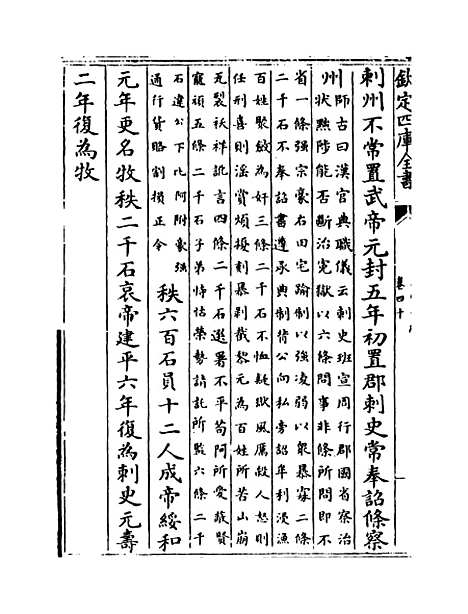 欽定四庫全書
卷四十
刺州不常置武帝元封五年初置郡刺史常奉詔條察
州
師古曰漢官典職儀云刺史班宣周行郡國省察治
狀黜陟能否斷治寃獄以六條問事非條所問即不
省一條强宗豪右田宅踰制以强凌弱以衆暴寡二條
二千石不奉詔書遵承典制背公向私旁詔牟利浸漁
百姓聚斂為奸三條二千石不恤疑獄風厲殺人怒則
任刑喜則淫賞煩擾刻暴剥截黎元為百姓所苦山崩
石裂祅祥訛言四條二千石選署不平苟阿所愛蔽賢
寵頑五條二千石子弟恃怙榮勢請託所監六條二千
石違公下比阿附豪强
通行貨賂割損正令
秩六百石員十二人成帝綏和
元年更名牧秩二千石哀帝建平六年復為刺史元壽
二年復為牧